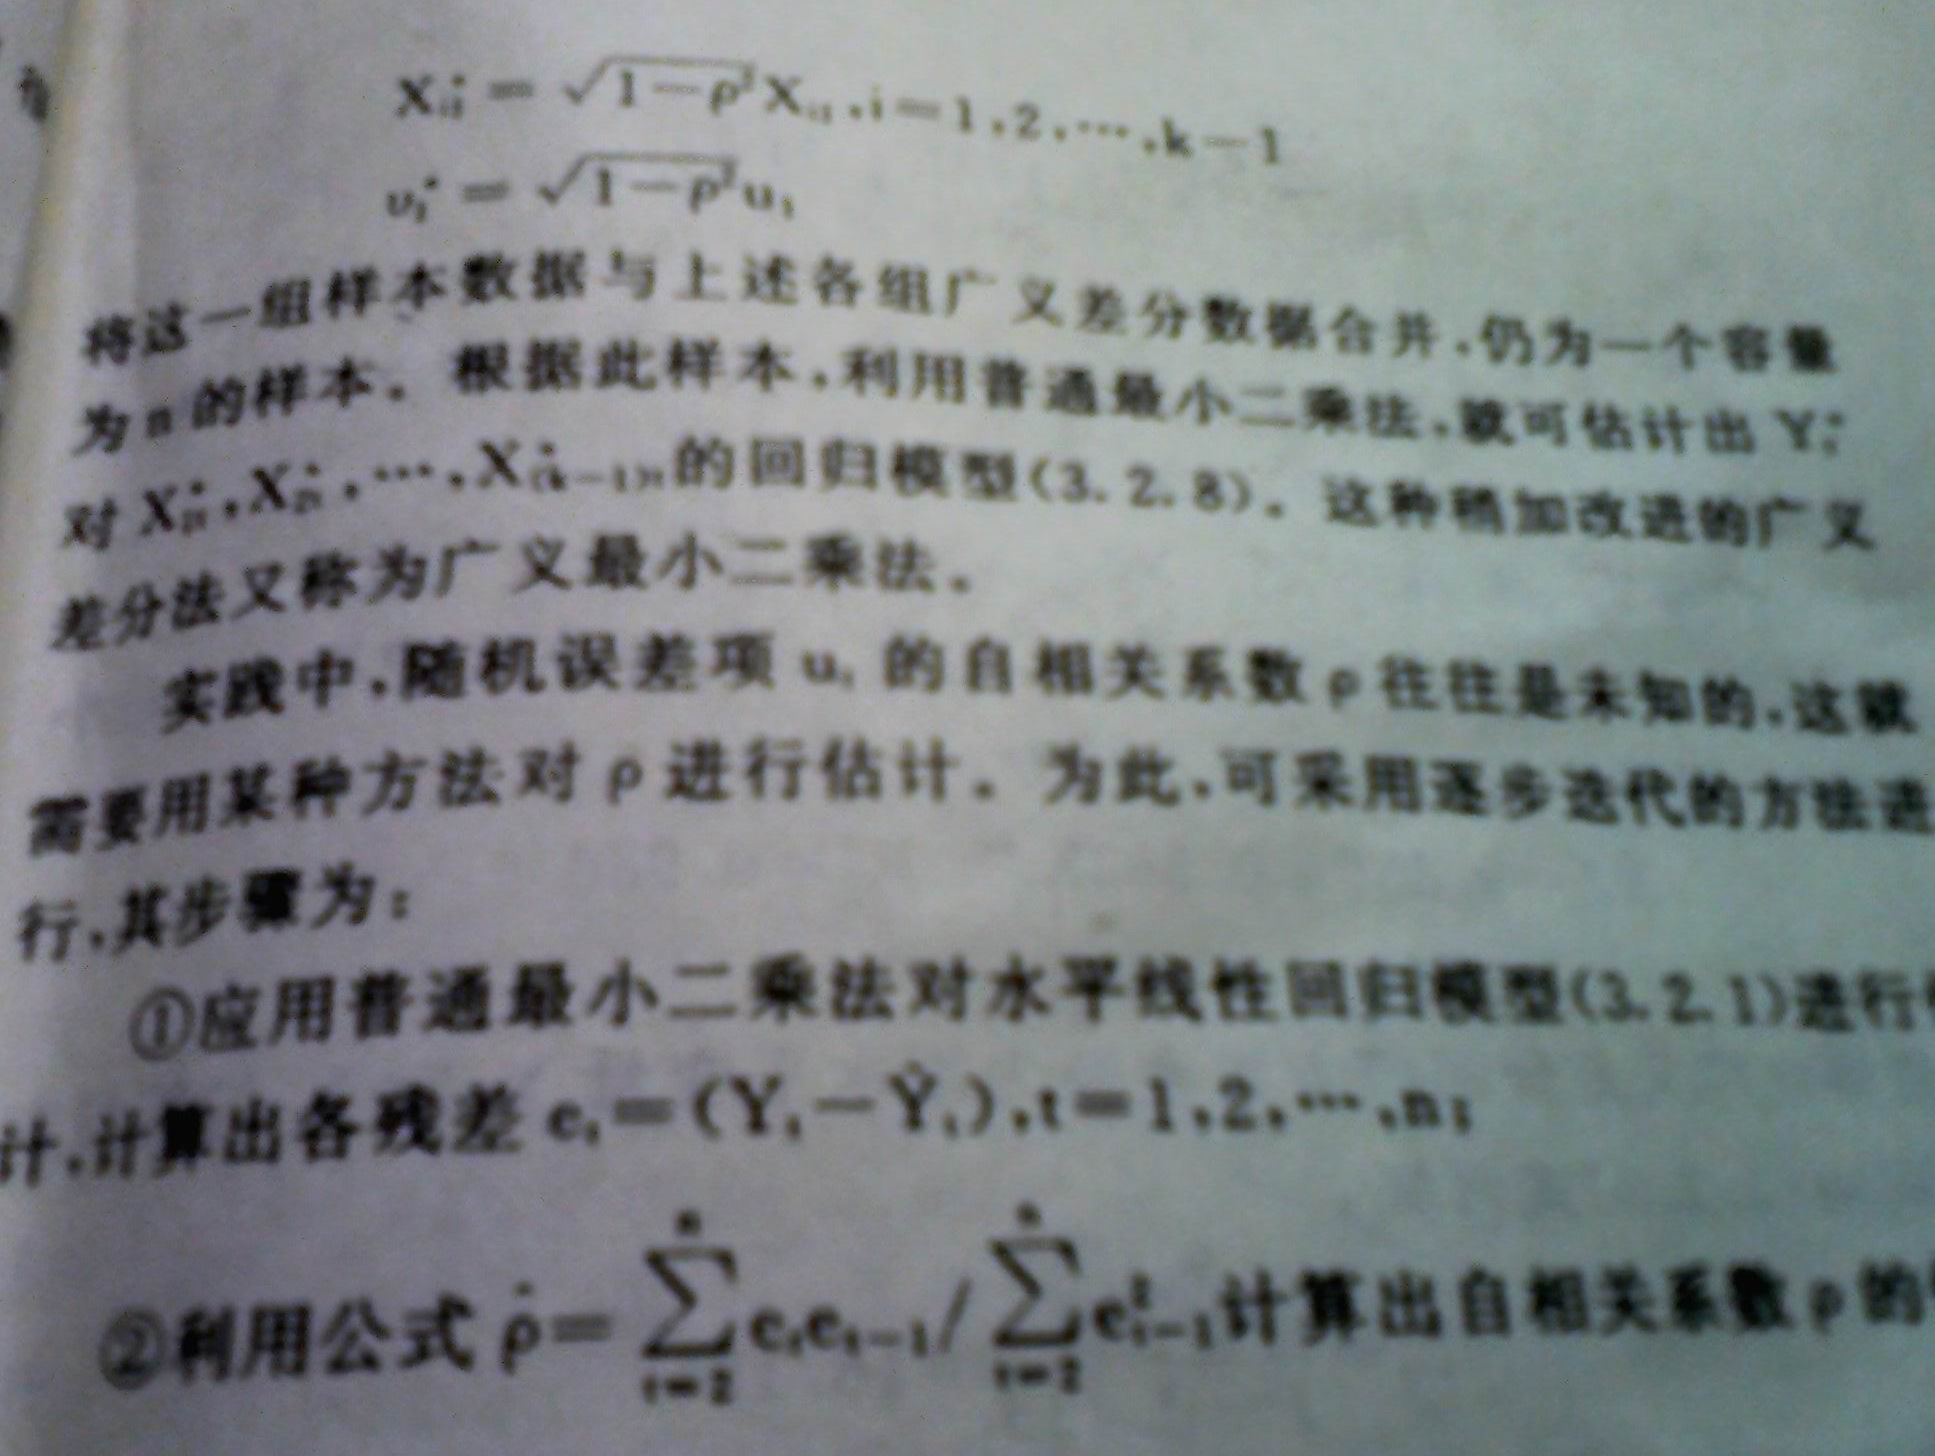 X*ᵢ₁ = √(1−ρ²) Xᵢ₁, i=1,2,⋯,k−1
υ₁* = √(1−ρ²) u₁
将这一组样本数据与上述各组广义差分数据合并,仍为一个容量
为n的样本。根据此样本,利用普通最小二乘法,就可估计出 Yₜ*
对 X*₁ₜ,X*₂ₜ,⋯,X*₍ₖ₋₁₎ₜ的回归模型(3.2.8)。这种稍加改进的广义
差分法又称为广义最小二乘法。
实践中,随机误差项 uₜ 的自相关系数 ρ 往往是未知的,这就
需要用某种方法对 ρ 进行估计。为此,可采用逐步迭代的方法进
行,其步骤为:
①应用普通最小二乘法对水平线性回归模型(3.2.1)进行
计,计算出各残差 eₜ=(Yₜ−Ŷₜ),t=1,2,⋯,n;
②利用公式 ρ̂=∑ₜ₌₂ⁿeₜeₜ₋₁/∑ₜ₌₂ⁿe²ₜ₋₁计算出自相关系数 ρ 的